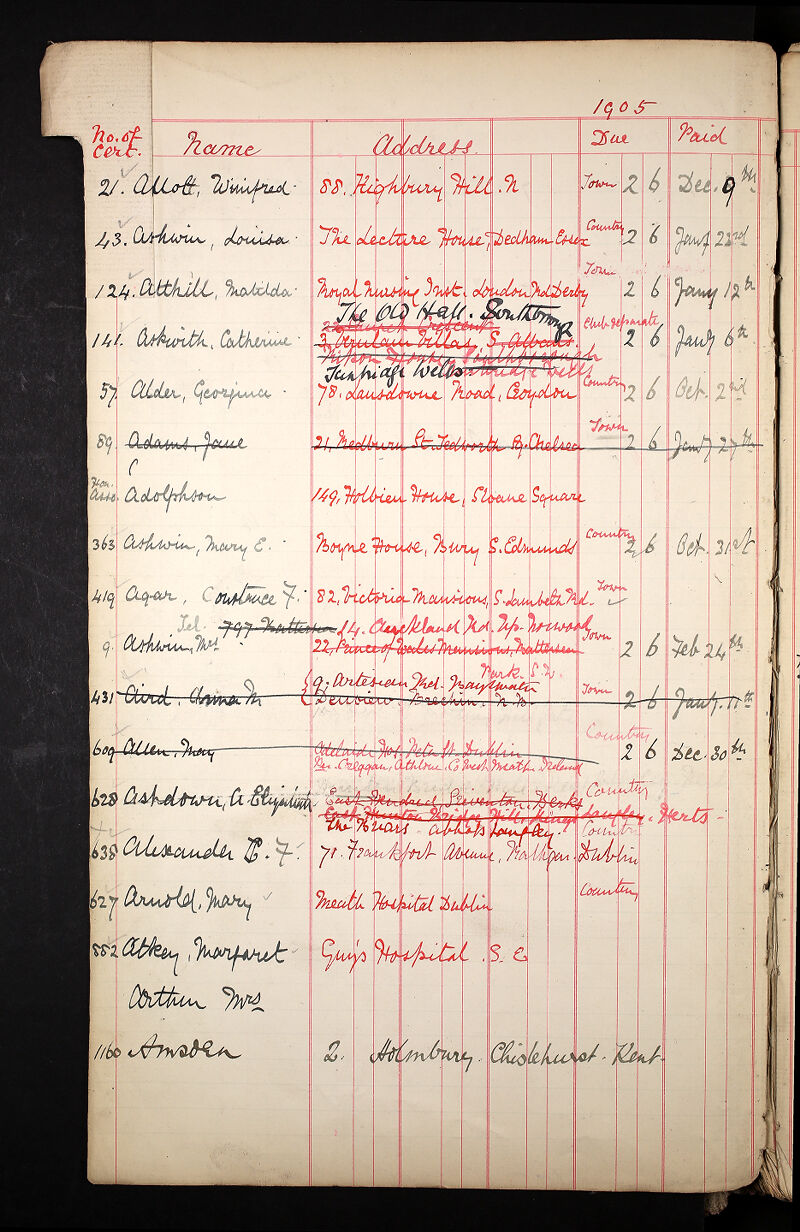 1905
No. of Cert. Name Address Due Paid
21. Allott, Winifred. 88. Highbury Hill. N Town 2 6 Dec. 9th
43. Ashwin, Louisa. The Lecture House, Dedham Essex Country 2 6 Jany 23rd
Town
124. Atthill, Matilda. Royal Nursing Inst. London Rd Derby 2 6 Jany 12th
The Old Hall. Southborough
Crescent Club separate
141. Askwith, Catherine. 3, Verulam Villas, S. Albans. 2 6 Jany 6th
Tunbridge Wells
57. Alder, Georgina. 78. Lansdowne Road, Croydon Country 2 6 Oct. 2nd
Town
89. Adams, Jane 21, Redburn St. Tedworth Sq. Chelsea 2 6 Jany 27th
Hon. Asso. Adolphson 149, Holbien House, Sloane Square
363 Ashwin, Mary E. Boyne House, Bury S. Edmunds Country 2 6 Oct. 31st
419 Agar, Constance F. 82, Victoria Mansions, S. Lambeth Rd. Town
Tel. 797 Battersea 14. Auckland Rd. Up. Norwood
9. Ashwin, Mrs 22, Prince of Wales Mansions, Battersea Town 2 6 Feb 24th
Park. S.W.
9. Artesian Rd. Bayswater
431 Aird, Anna M Brechin. N.B. Town 2 6 Jany. 11th
Country
609 Allen, May Adelaide Hos. Peter St. Dublin 2 6 Dec. 30th
Creggan, Athlone, Co West Meath Ireland
628 Ashdown, A Elizabeth East Hendred, Steventon. Berks Country
East Hunton Bridge Hill, Kings Langley. Herts
The Briars. Abbots Langley. Country
638 Alexander F. 71. Frankfort Avenue, Rathgar. Dublin
627 Arnold, Mary Meath Hospital Dublin Country
882 Atkey, Margaret Guy's Hospital. S. E
Arthur Mrs
1160 Amsden 2. Holmbury. Chislehurst. Kent.